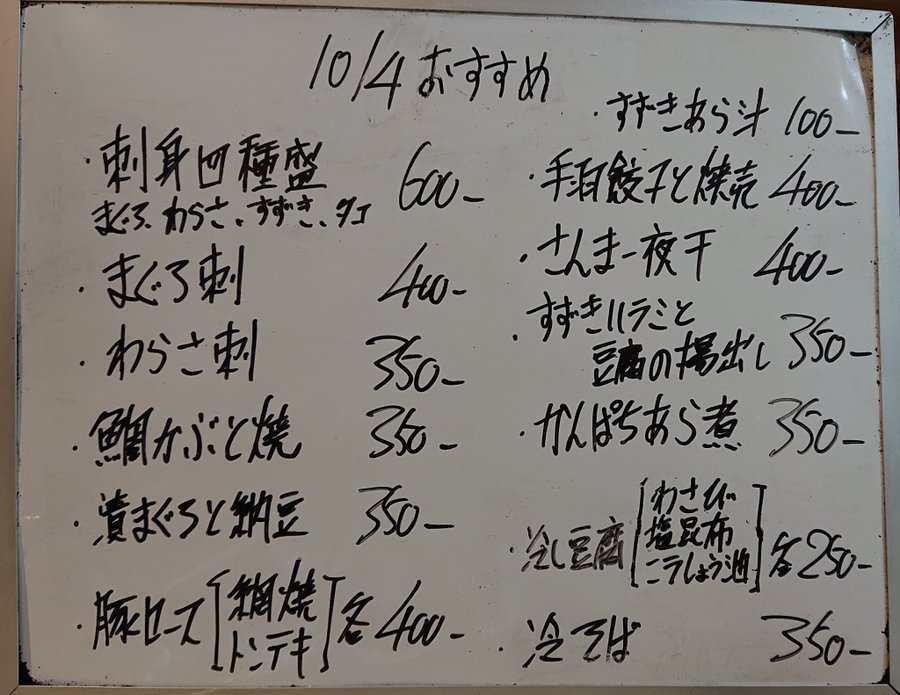 10/4 おすすめ
・刺身四種盛 600-
まぐろ、わらさ、すずき、タコ
・まぐろ刺 400-
・わらさ刺 350-
・鯛かぶと焼 350-
・漬まぐろと納豆 350-
・豚ロース[網焼 トンテキ]各400-
・すずきあら汁 100-
・手羽餃子と焼売 400-
・さんま一夜干 400-
・すずきハラミと
豆腐の揚出し 350-
・かんぱちあら煮 350-
・冷し豆腐[わさび 塩昆布 ニラしょう油]各250-
・冷そば 350-